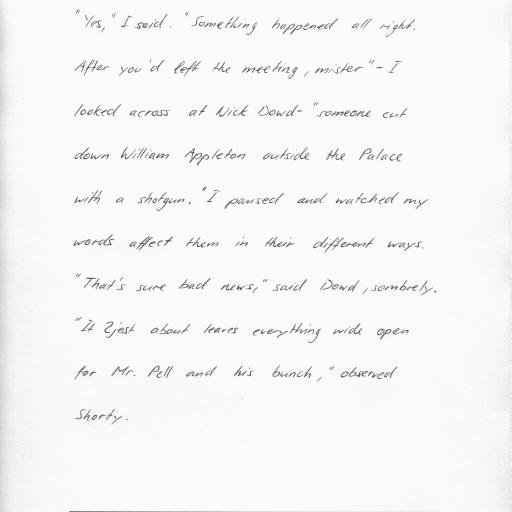 "Yes," I said. "Something happened all right.
After you'd left the meeting, mister" - I
looked across at Nick Dowd - "someone cut
down William Appleton outside the Palace
with a shotgun." I paused and watched my
words affect them in their different ways.
"That's sure bad news," said Dowd, sombrely.
"It jest about leaves everything wide open
for Mr. Pell and his bunch," observed
Shorty.